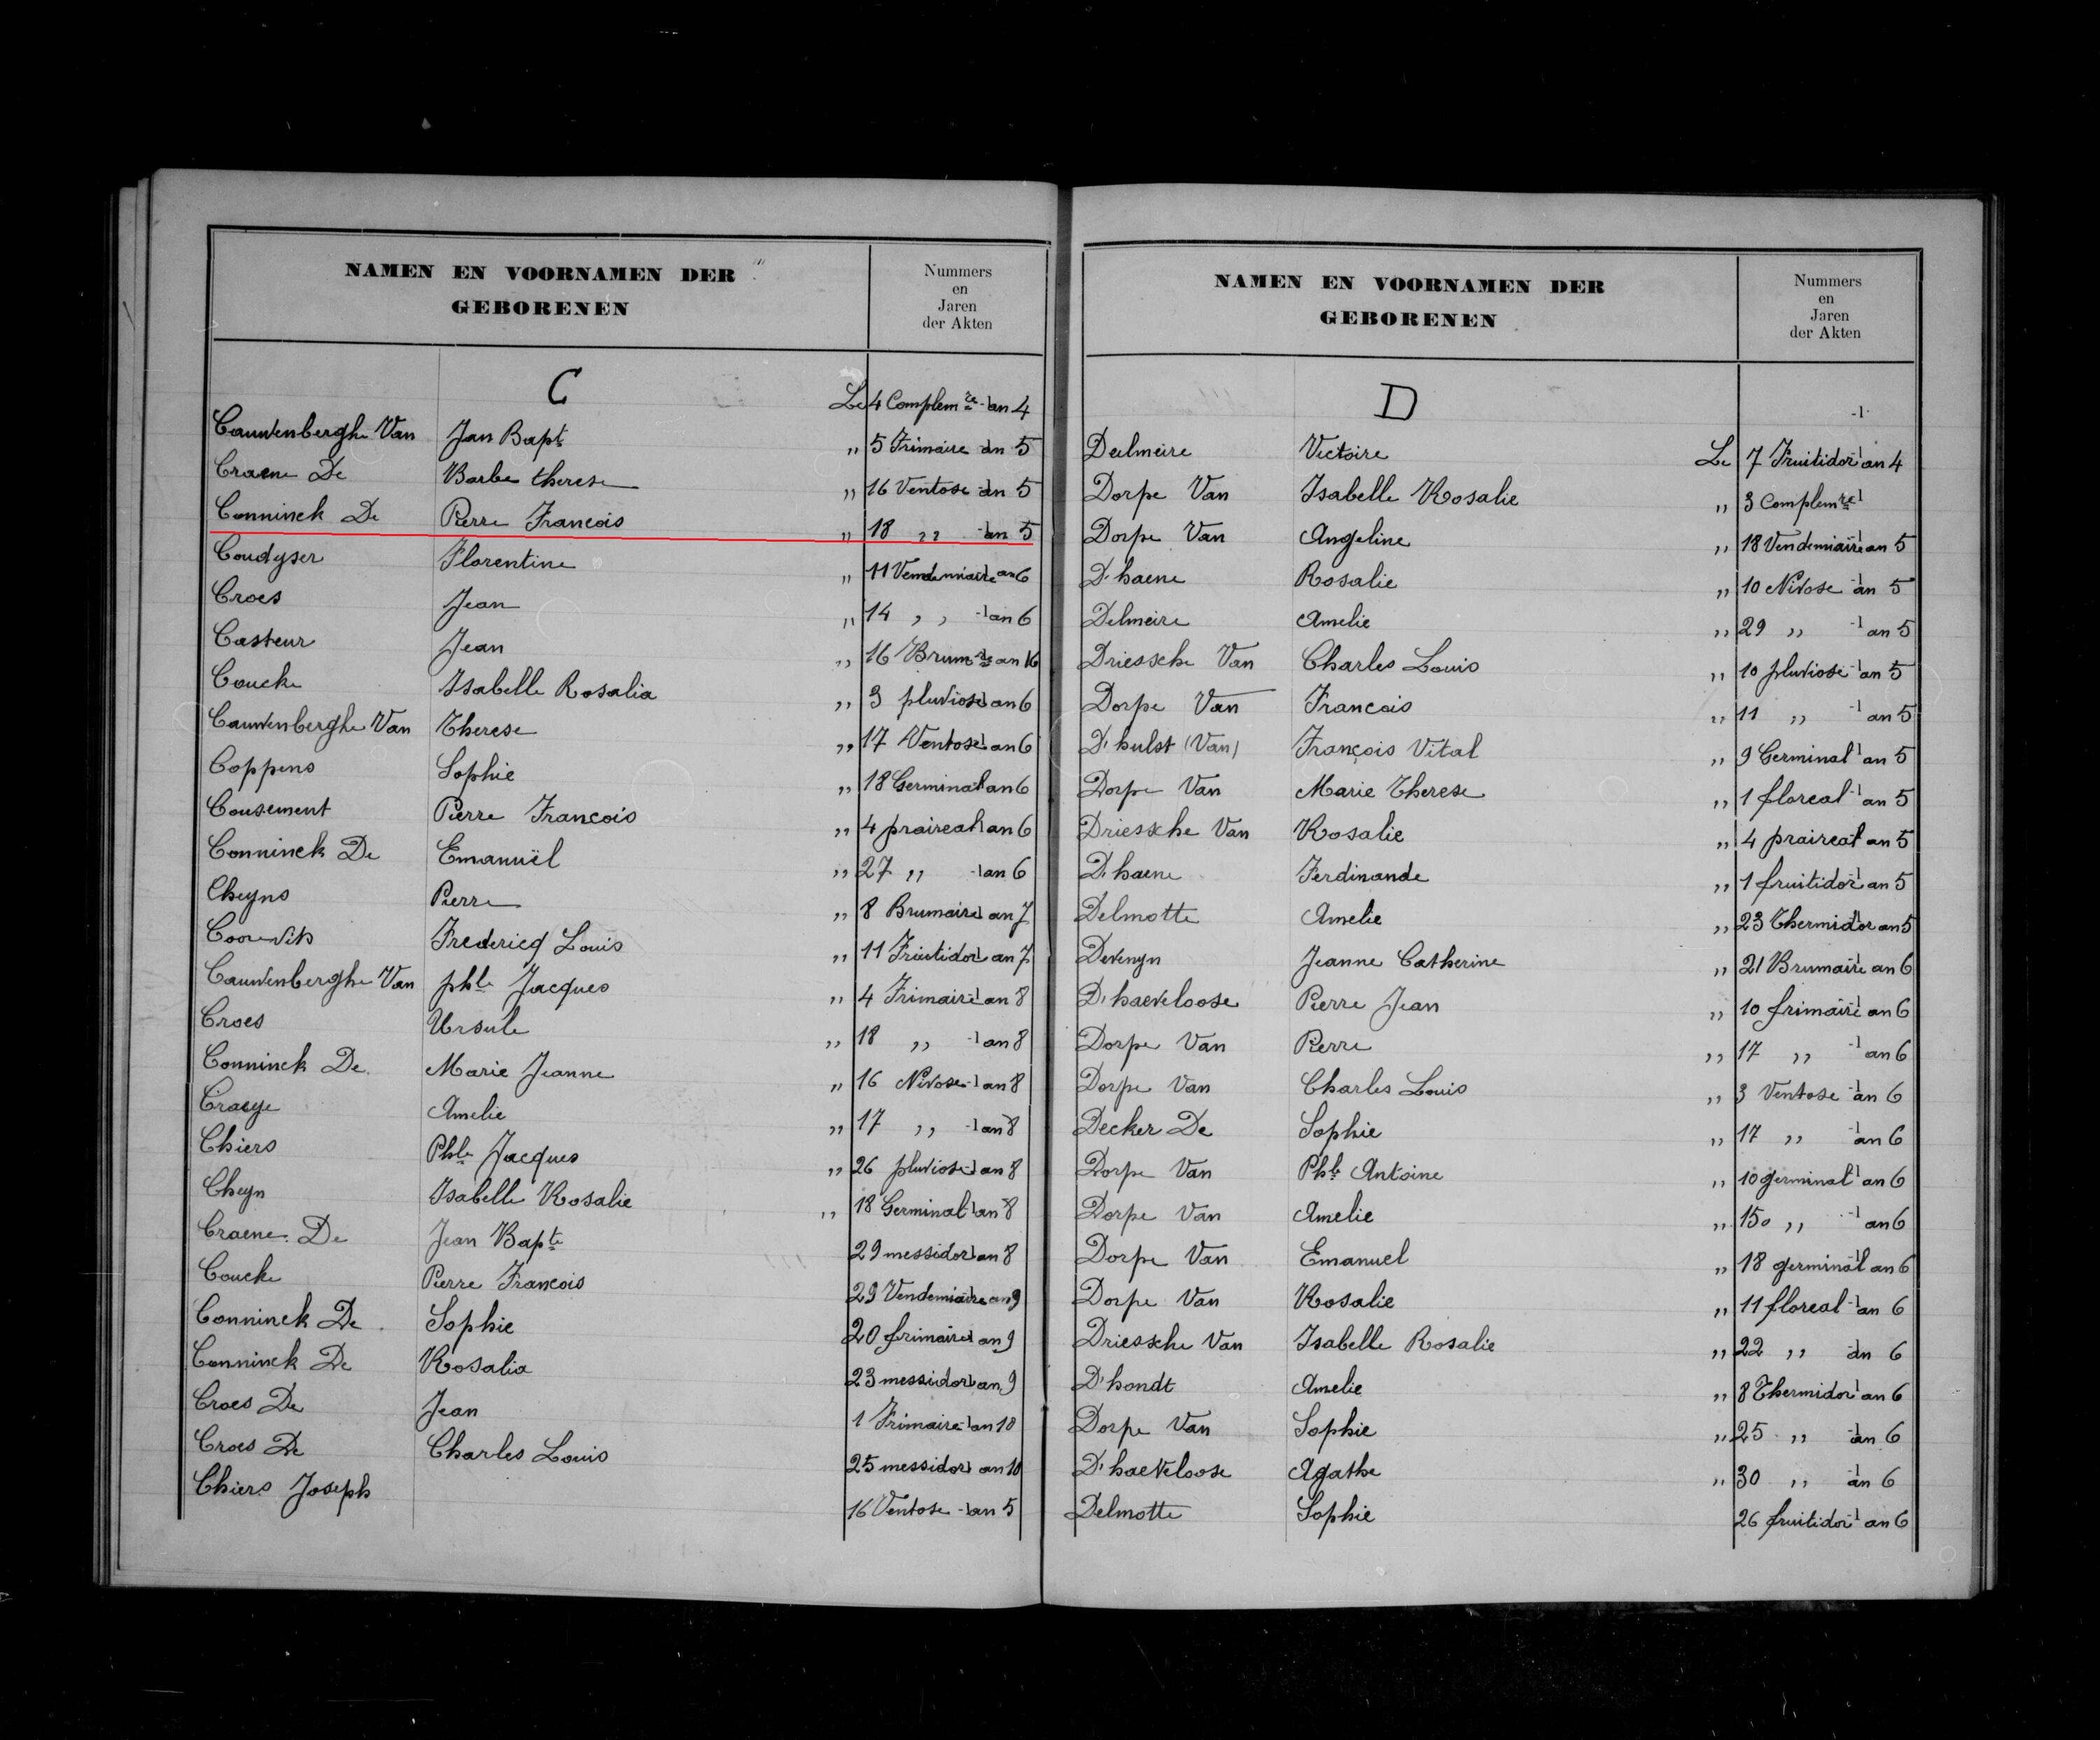 NAMEN EN VOORNAMEN DER
GEBORENEN
Nummers
en
Jaren
der Akten
C Le 4 Complem re an 4
Cauwenberghe Van Jan Bapte " 5 Frimaire an 5
Craene De Barbe therese " 16 Ventose an 5
Conninck De Pierre Francois " 18 " an 5
Coudyser Florentine " 11 Vendemiaire an 6
Croes Jean " 14 " an 6
Casteur Jean " 16 Brum re an 16
Coucke Isabelle Rosalia " 3 pluviose an 6
Cauwenberghe Van Therese " 17 Ventose an 6
Coppens Sophie " 18 Germinal an 6
Cousement Pierre Francois " 4 praireal an 6
Conninck De Emanuël " 27 " an 6
Cheyns Pierre " 8 Brumaire an 7
Coorevits Fredericq Louis " 11 Fruitidor an 7
Cauwenberghe Van phle Jacques " 4 Frimaire an 8
Croes Ursule " 18 " an 8
Conninck De Marie Jeanne " 16 Nivose an 8
Craeye Amelie " 17 " an 8
Chiers Phle Jacques " 26 pluviose an 8
Cheyn Isabelle Rosalie " 18 Germinal an 8
Craene De Jean Bapte 29 messidor an 8
Coucke Pierre Francois 29 Vendemiaire an 9
Conninck De Sophie 20 frimaire an 9
Conninck De Rosalia 23 messidor an 9
Croes De Jean 1 Frimaire an 10
Croes De Charles Louis 25 messidor an 10
Chiers Joseph 16 Ventose an 5
NAMEN EN VOORNAMEN DER
GEBORENEN
Nummers
en
Jaren
der Akten
D
Deelmeire Victoire Le 7 Fruitidor an 4
Dorpe Van Isabelle Rosalie " 3 complem re
Dorpe Van Angeline " 18 Vendemiaire an 5
D'haene Rosalie " 10 Nivose an 5
Delmeire Amelie " 29 " an 5
Driessche Van Charles Louis " 10 pluviose an 5
Dorpe Van Francois " 11 " an 5
D'hulst (Van) François Vital " 9 Germinal an 5
Dorpe Van Marie Therese " 1 floreal an 5
Driessche Van Rosalie " 4 praireal an 5
D'haene Ferdinande " 1 fruitidor an 5
Delmotte Amelie " 23 Thermidor an 5
Devenyn Jeanne Catherine " 21 Brumaire an 6
D'haeveloose Pierre Jean " 10 frimaire an 6
Dorpe Van Pierre " 17 " an 6
Dorpe Van Charles Louis " 3 Ventose an 6
Decker De Sophie " 17 " an 6
Dorpe Van Phle Antoine " 10 germinal an 6
Dorpe Van Amelie " 150 " an 6
Dorpe Van Emanuel " 18 germinal an 6
Dorpe Van Rosalie " 11 floreal an 6
Driessche Van Isabelle Rosalie " 22 " an 6
D'hondt Amelie " 8 Thermidor an 6
Dorpe Van Sophie " 25 " an 6
D'haeveloose Agathe " 30 " an 6
Delmotte Sophie 26 fruitidor an 6